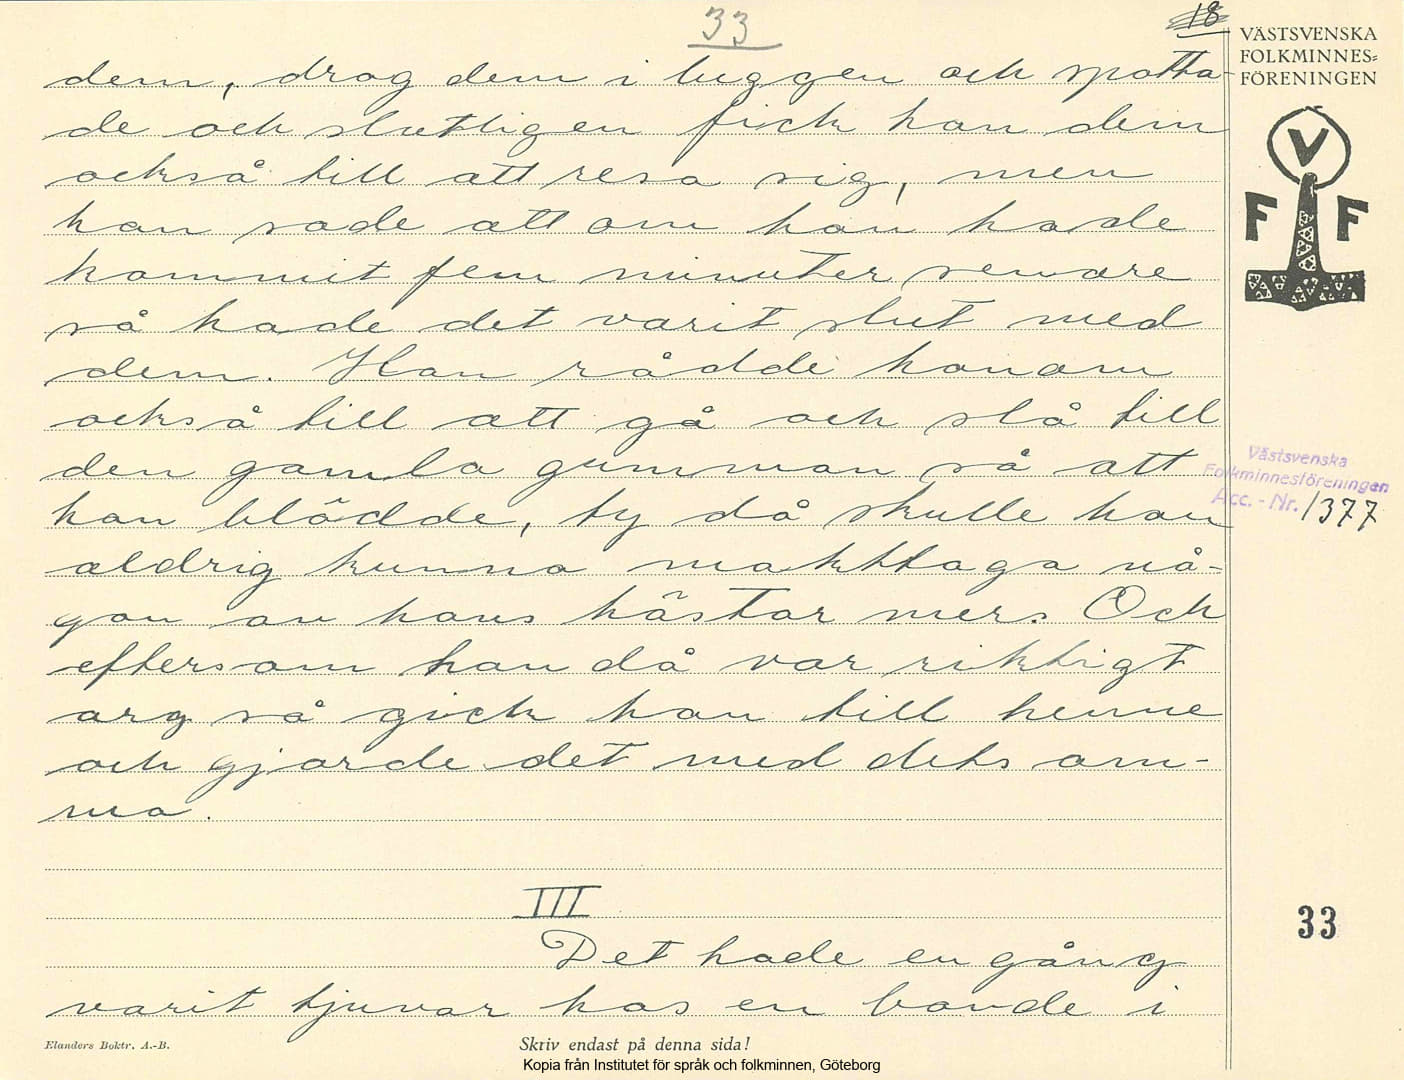 33
18
VÄSTSVENSKA
FOLKMINNES=
FÖRENINGEN
V
F F
dem, drog dem i luggen och spotta-
de och slutligen fick han dem
också till att resa sig, men
han sade att om han hade
kommit fem minuter senare
så hade det varit slut med
dem. Han rådde honom
också till att gå och slå till
den gamla gumman så att
hon blödde, ty då skulle hon
aldrig kunna makttaga nå-
gon av hans hästar mer. Och
eftersom han då var riktigt
arg så gick han till henne
och gjorde det med detsam-
ma.
Västsvenska
Folkminnesföreningen
Acc. - Nr. 1377
III
Det hade en gång
varit tjuvar hos en bonde i
33
Elanders Boktr. A.-B.
Skriv endast på denna sida!
Kopia från Institutet för språk och folkminnen, Göteborg